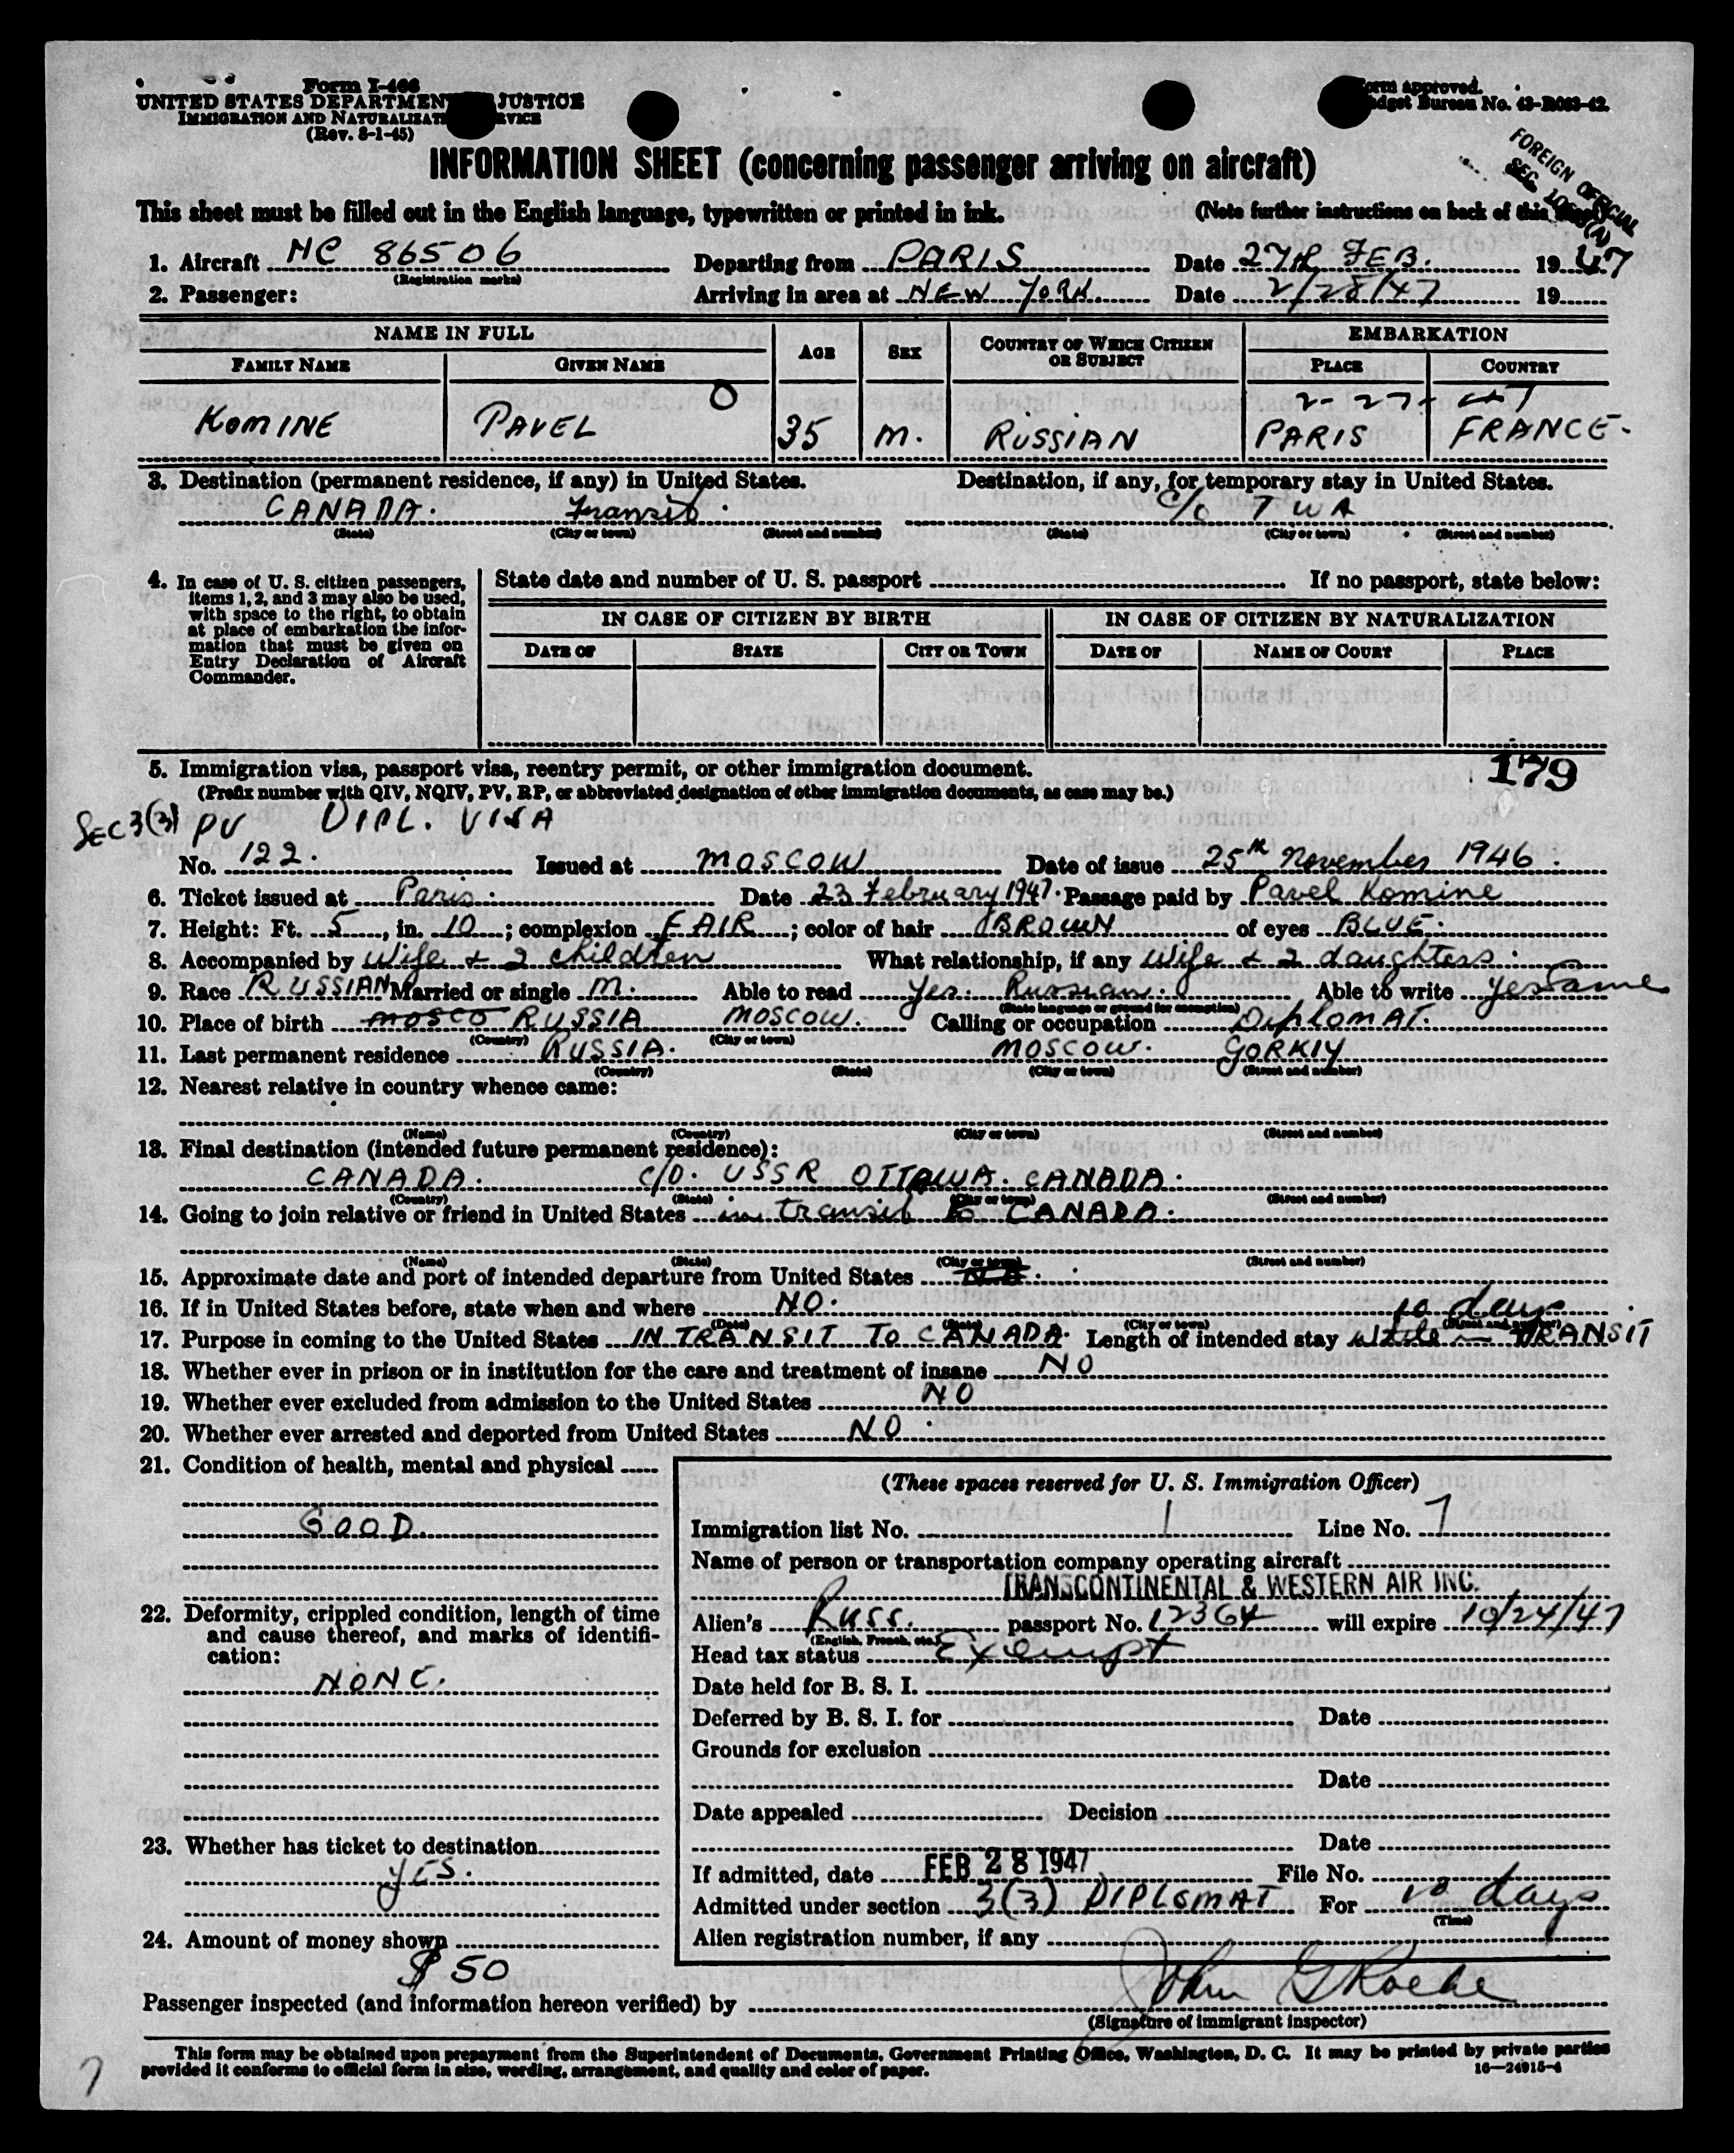 Form I-466
UNITED STATES DEPARTMENT JUSTICE
IMMIGRATION AND NATURALIZATI RVICE
(Rev. 8-1-45)
orm approved.
dget Bureau No. 43-R063-42.
FOREIGN OFFICIAL
SEC.
INFORMATION SHEET (concerning passenger arriving on aircraft)
This sheet must be filled out in the English language, typewritten or printed in ink. (Note further instructions on back of this
1. Aircraft NC 86506 Departing from PARIS Date 27th FEB. 1947
(Registration marks)
2. Passenger: Arriving in area at NEW YORK. Date 2/28/47 19
NAME IN FULL AGE SEX COUNTRY OF WHICH CITIZEN OR SUBJECT EMBARKATION
FAMILY NAME GIVEN NAME PLACE COUNTRY
O 2-27-47
KOMINE PAVEL 35 M. RUSSIAN PARIS FRANCE.
3. Destination (permanent residence, if any) in United States. Destination, if any, for temporary stay in United States.
CANADA. Transit. C/O TWA
(State) (City or town) (Street and number) (State) (City or town) (Street and number)
4. In case of U. S. citizen passengers, items 1, 2, and 3 may also be used, with space to the right, to obtain at place of embarkation the information that must be given on Entry Declaration of Aircraft Commander.
State date and number of U. S. passport If no passport, state below:
IN CASE OF CITIZEN BY BIRTH IN CASE OF CITIZEN BY NATURALIZATION
DATE OF STATE CITY OR TOWN DATE OF NAME OF COURT PLACE
179
5. Immigration visa, passport visa, reentry permit, or other immigration document.
(Prefix number with QIV, NQIV, PV, RP, or abbreviated designation of other immigration documents, as case may be.)
SEC 3(3) PV DIPL. VISA
No. 122. Issued at MOSCOW Date of issue 25th November 1946.
6. Ticket issued at Paris. Date 23 February 1947. Passage paid by Pavel Komine
7. Height: Ft. 5, in. 10; complexion FAIR; color of hair BROWN of eyes BLUE.
8. Accompanied by Wife & 2 children What relationship, if any Wife & 2 daughters.
9. Race RUSSIAN Married or single M. Able to read Yes. Russian. Able to write yes Same
(State language or ground for exemption)
10. Place of birth MOSCO RUSSIA MOSCOW. Calling or occupation DiplOMAT.
(Country) (City or town)
11. Last permanent residence RUSSIA. MOSCOW. GORKIY
(Country) (State) (City or town) (Street and number)
12. Nearest relative in country whence came:
(Name) (Country) (City or town) (Street and number)
13. Final destination (intended future permanent residence):
CANADA. C/O. USSR OTTAWA. CANADA.
(Country) (State) (City or town) (Street and number)
14. Going to join relative or friend in United States in transit to CANADA.
(Name) (State) (City or town) (Street and number)
15. Approximate date and port of intended departure from United States
16. If in United States before, state when and where NO.
(Date) (State) (City or town) (Street and number)
10 days
17. Purpose in coming to the United States IN TRANSIT TO CANADA. Length of intended stay while in TRANSIT
18. Whether ever in prison or in institution for the care and treatment of insane NO
19. Whether ever excluded from admission to the United States NO
20. Whether ever arrested and deported from United States NO.
21. Condition of health, mental and physical
GOOD.
22. Deformity, crippled condition, length of time and cause thereof, and marks of identification:
NONE.
23. Whether has ticket to destination
YES.
24. Amount of money shown
$50
(These spaces reserved for U. S. Immigration Officer)
Immigration list No. 1 Line No. 7
Name of person or transportation company operating aircraft
TRANSCONTINENTAL & WESTERN AIR INC.
Alien's Russ. passport No. 12364 will expire 10/24/47
(English, French, etc.)
Head tax status Exempt
Date held for B. S. I.
Deferred by B. S. I. for Date
Grounds for exclusion
Date
Date appealed Decision
Date
If admitted, date FEB 28 1947 File No.
Admitted under section 3(3) DIPLOMAT For 10 days
(Time)
Alien registration number, if any
Passenger inspected (and information hereon verified) by John G
(Signature of immigrant inspector)
This form may be obtained upon prepayment from the Superintendent of Documents, Government Printing Office, Washington, D. C. It may be printed by private parties
provided it conforms to official form in size, wording, arrangement, and quality and color of paper. 16—24915-4
7